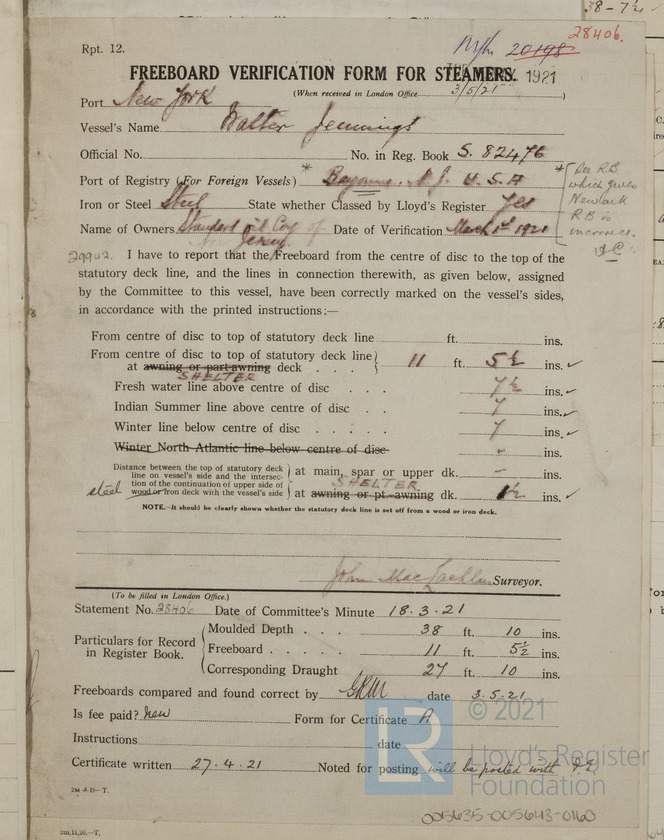 38 - 7½
28406.
Rpt. 12.
N/Yk 20198
FREEBOARD VERIFICATION FORM FOR STEAMERS.
1921
(When received in London Office 3/5/21 )
Port New York
Vessel's Name Walter Jennings
Official No. No. in Reg. Book S. 82476
Port of Registry (For Foreign Vessels) * Bayonne. N.J. U.S.A
* See R.B
which gives
Newark
R.B is
incorrect.
Iron or Steel Steel State whether Classed by Lloyd's Register Yes
Name of Owners Standard Oil Coy of Date of Verification March 1st 1921
New Jersey.
29942. I have to report that the Freeboard from the centre of disc to the top of the
statutory deck line, and the lines in connection therewith, as given below, assigned
by the Committee to this vessel, have been correctly marked on the vessel's sides,
in accordance with the printed instructions:—
From centre of disc to top of statutory deck line ft. ins.
From centre of disc to top of statutory deck line
at awning or part awning deck . . . 11 ft. 5½ ins. ✓
SHELTER
Fresh water line above centre of disc . . 7½ ins. ✓
Indian Summer line above centre of disc . . 7 ins. ✓
Winter line below centre of disc . . . . . 7 ins. ✓
Winter North Atlantic line below centre of disc - ins.
Distance between the top of statutory deck
line on vessel's side and the intersec-
tion of the continuation of upper side of
steel wood or iron deck with the vessel's side
at main, spar or upper dk. - ins.
SHELTER
at awning or pt. awning dk. 1½ ins. ✓
NOTE.—It should be clearly shown whether the statutory deck line is set off from a wood or iron deck.
John MacLachlan Surveyor.
(To be filled in London Office.)
Statement No. 28406 Date of Committee's Minute 18.3.21
Particulars for Record
in Register Book.
Moulded Depth . . . 38 ft. 10 ins.
Freeboard . . . . . 11 ft. 5½ ins.
Corresponding Draught 27 ft. 10 ins.
Freeboards compared and found correct by GRM date 3.5.21
Is fee paid? New Form for Certificate A
Instructions date
Certificate written 27.4.21 Noted for posting will be posted with
2M-8-19—T.
2m,11,20.—T.
LR
© 2021
Lloyd's Register
Foundation
005635-005643-0160